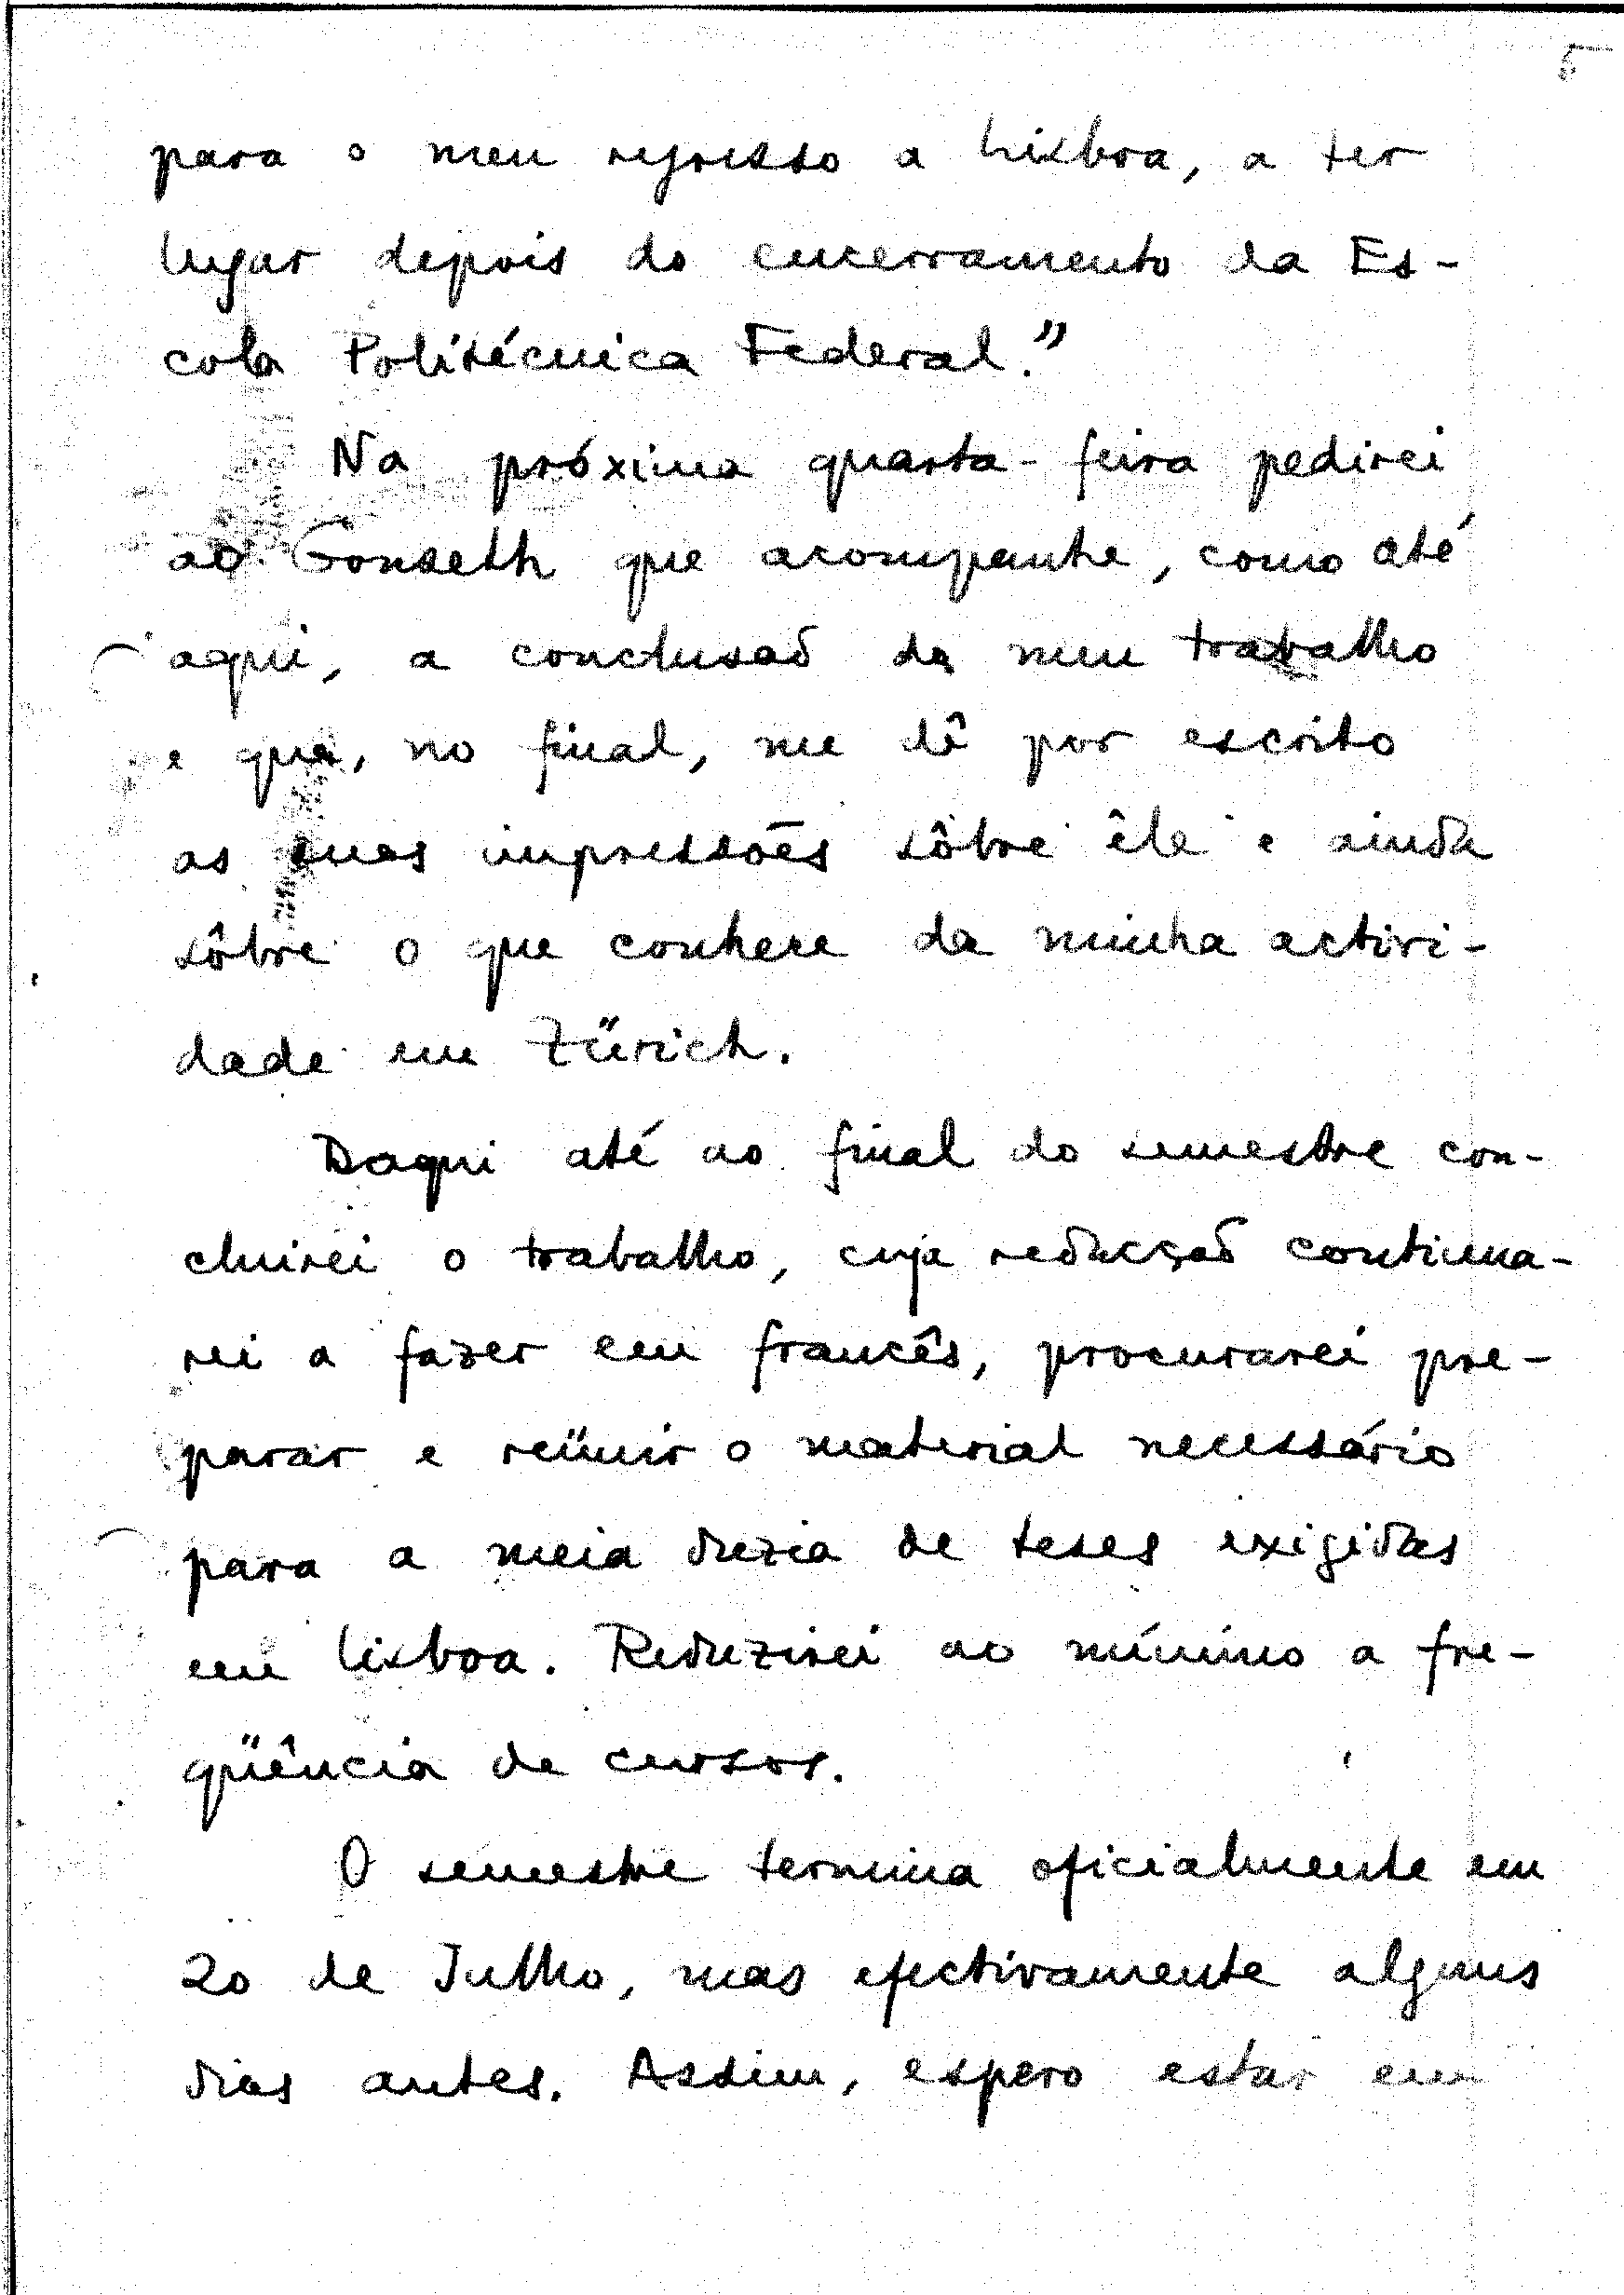 5
para o meu regresso a Lisboa, a ter
lugar depois do encerramento da Es-
cola Politécnica Federal."
Na próxima quarta-feira pedirei
ao Gonseth que acompanhe, como até
aqui, a conclusaõ do meu trabalho
e que, no final, me dê por escrito
as suas impressões sôbre êle e ainda
sôbre o que conhece da minha activi-
dade em Zürich.
Daqui até ao final do semestre con-
cluirei o trabalho, cuja redacçaõ continua-
rei a fazer em francês, procurarei pre-
parar e reünir o material necessário
para a meia duzia de teses exigidas
em Lisboa. Reduzirei ao mínimo a fre-
qüência de cursos.
O semestre termina oficialmente em
20 de Julho, mas efectivamente alguns
dias antes. Assim, espero estar em